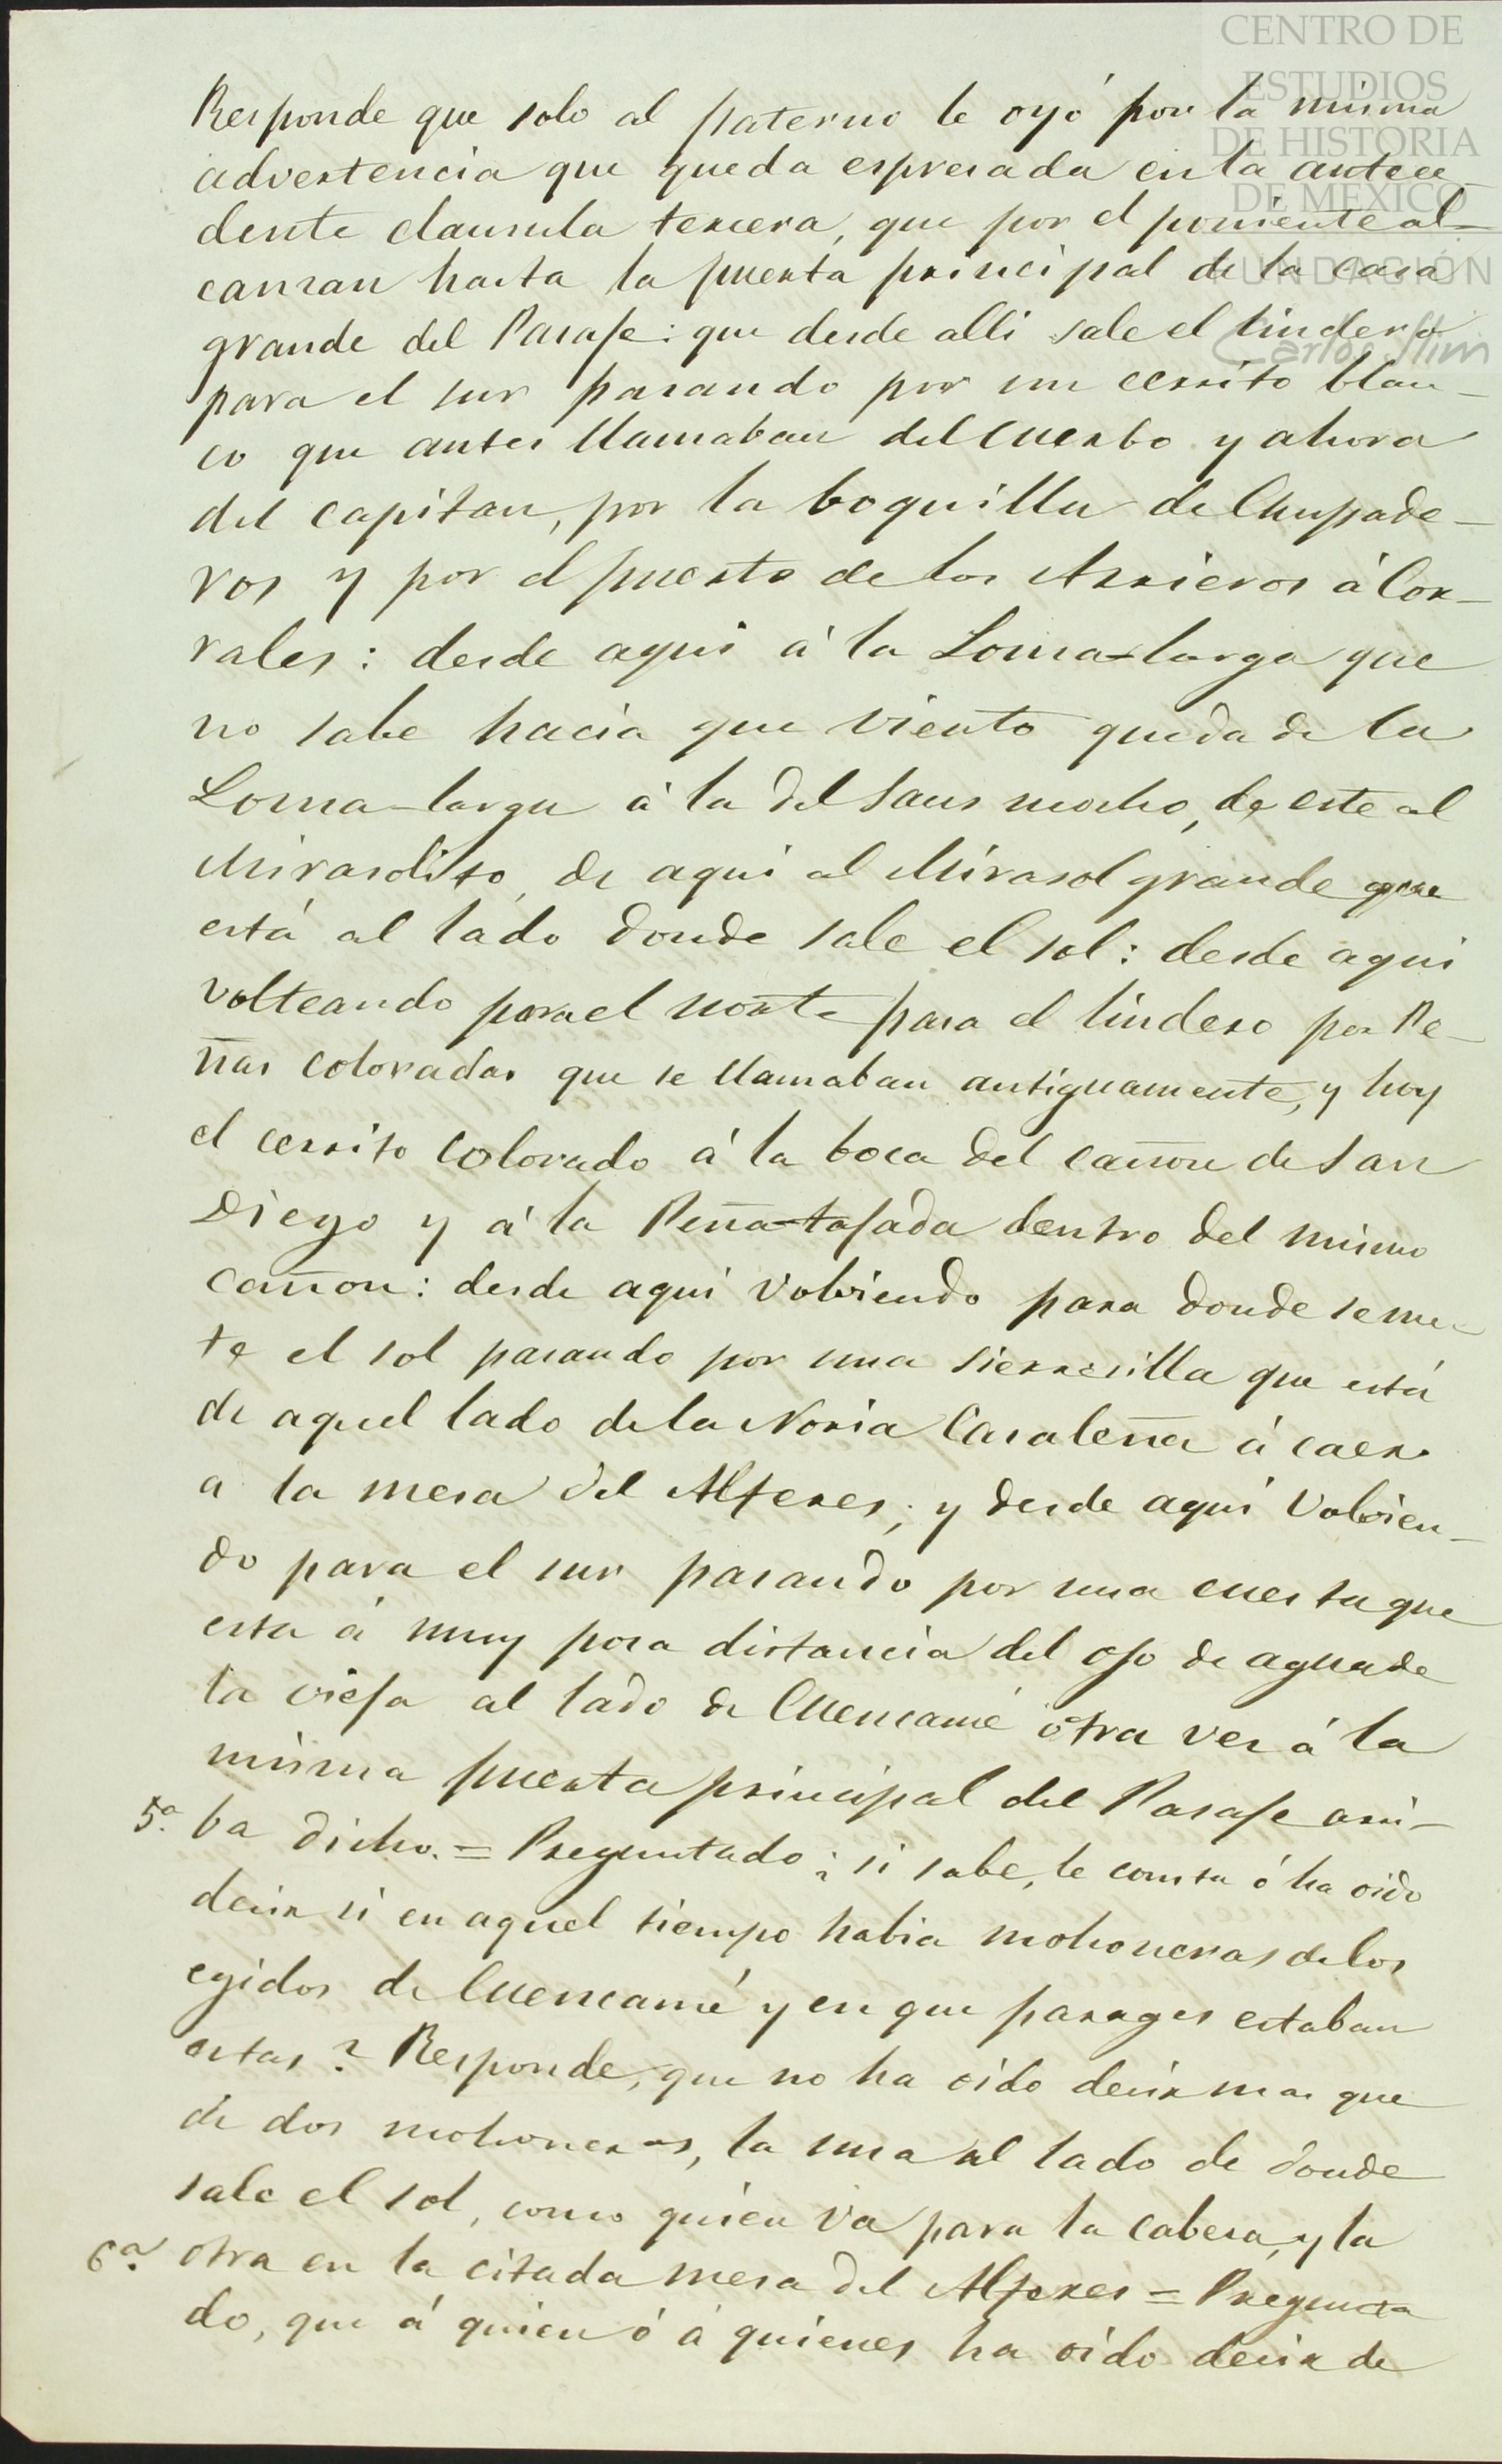 CENTRO DE
ESTUDIOS
DE HISTORIA
DE MEXICO
FUNDACIÓN
Carlos Slim
Responde que solo al paterno le oyó por la misma
advertencia que queda espresada en la antece
dente clausula tercera, que por el poniente al-
canzan hasta la puerta principal de la casa
grande del Pasaje: que desde alli sale el lindero
para el sur pasando por un cerrito blan-
co que antes llamaban del Cuerbo y ahora
del capitan, por la boquilla de Chupade-
ros y por el puerto de los Arrieros á Cor-
rales: desde aqui á la Loma-larga que
no sabe hacia que viento queda de la
Loma-larga á la del Saus mocho, de este al
Mirasolito, de aqui al Mirasol grande que
está al lado donde sale el sol: desde aqui
volteando para el norte pasa el lindero por Pe-
ñas coloradas que se llamaban antiguamente, y hoy
el cerrito colorado á la boca del cañon de San
Diego y á la Peña-tajada dentro del mismo
cañon: desde aqui volviendo para donde se me-
te el sol pasando por una sierrecilla que está
de aquel lado de la Noria Casaleña á caer
a la mesa del Alferes; y desde aqui volvien-
do para el sur pasando por una cuesta que
esta á muy poca distancia del ojo de agua de
la vieja al lado de Cuencamé otra ves á la
misma puerta principal del Pasaje arri-
5.a ba dicho. = Preguntado; si sabe, le consta ó ha oido
decir si en aquel tiempo habia mohoneras de los
egidos de Cuencamé y en que parages estaban
estas? Responde, que no ha oido decir mas que
de dos mohoneras, la una al lado de donde
sale el sol, como quien va para la cabesa, y la
6.a otra en la citada mesa del Alferes = Pregunta
do, que á quien ó á quienes ha oido decir de